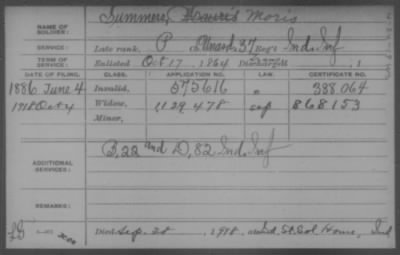 NAME OF SOLDIER: Summers, Moris
SERVICE: Late rank, P Unasd 37 Reg't Ind. Inf
TERM OF SERVICE: Enlisted Oct 17, 1864
DATE OF FILING. CLASS. APPLICATION NO. LAW. CERTIFICATE NO.
1886 June 4 Invalid, 575616 388064
1918 Oct 4 Widow, 1129.478 868153
Minor,
ADDITIONAL SERVICES: B, 22 and D, 82 Ind. Inf
REMARKS:
Died Sep. 28, 1918, at Ind. St. Sol. Home, Ind